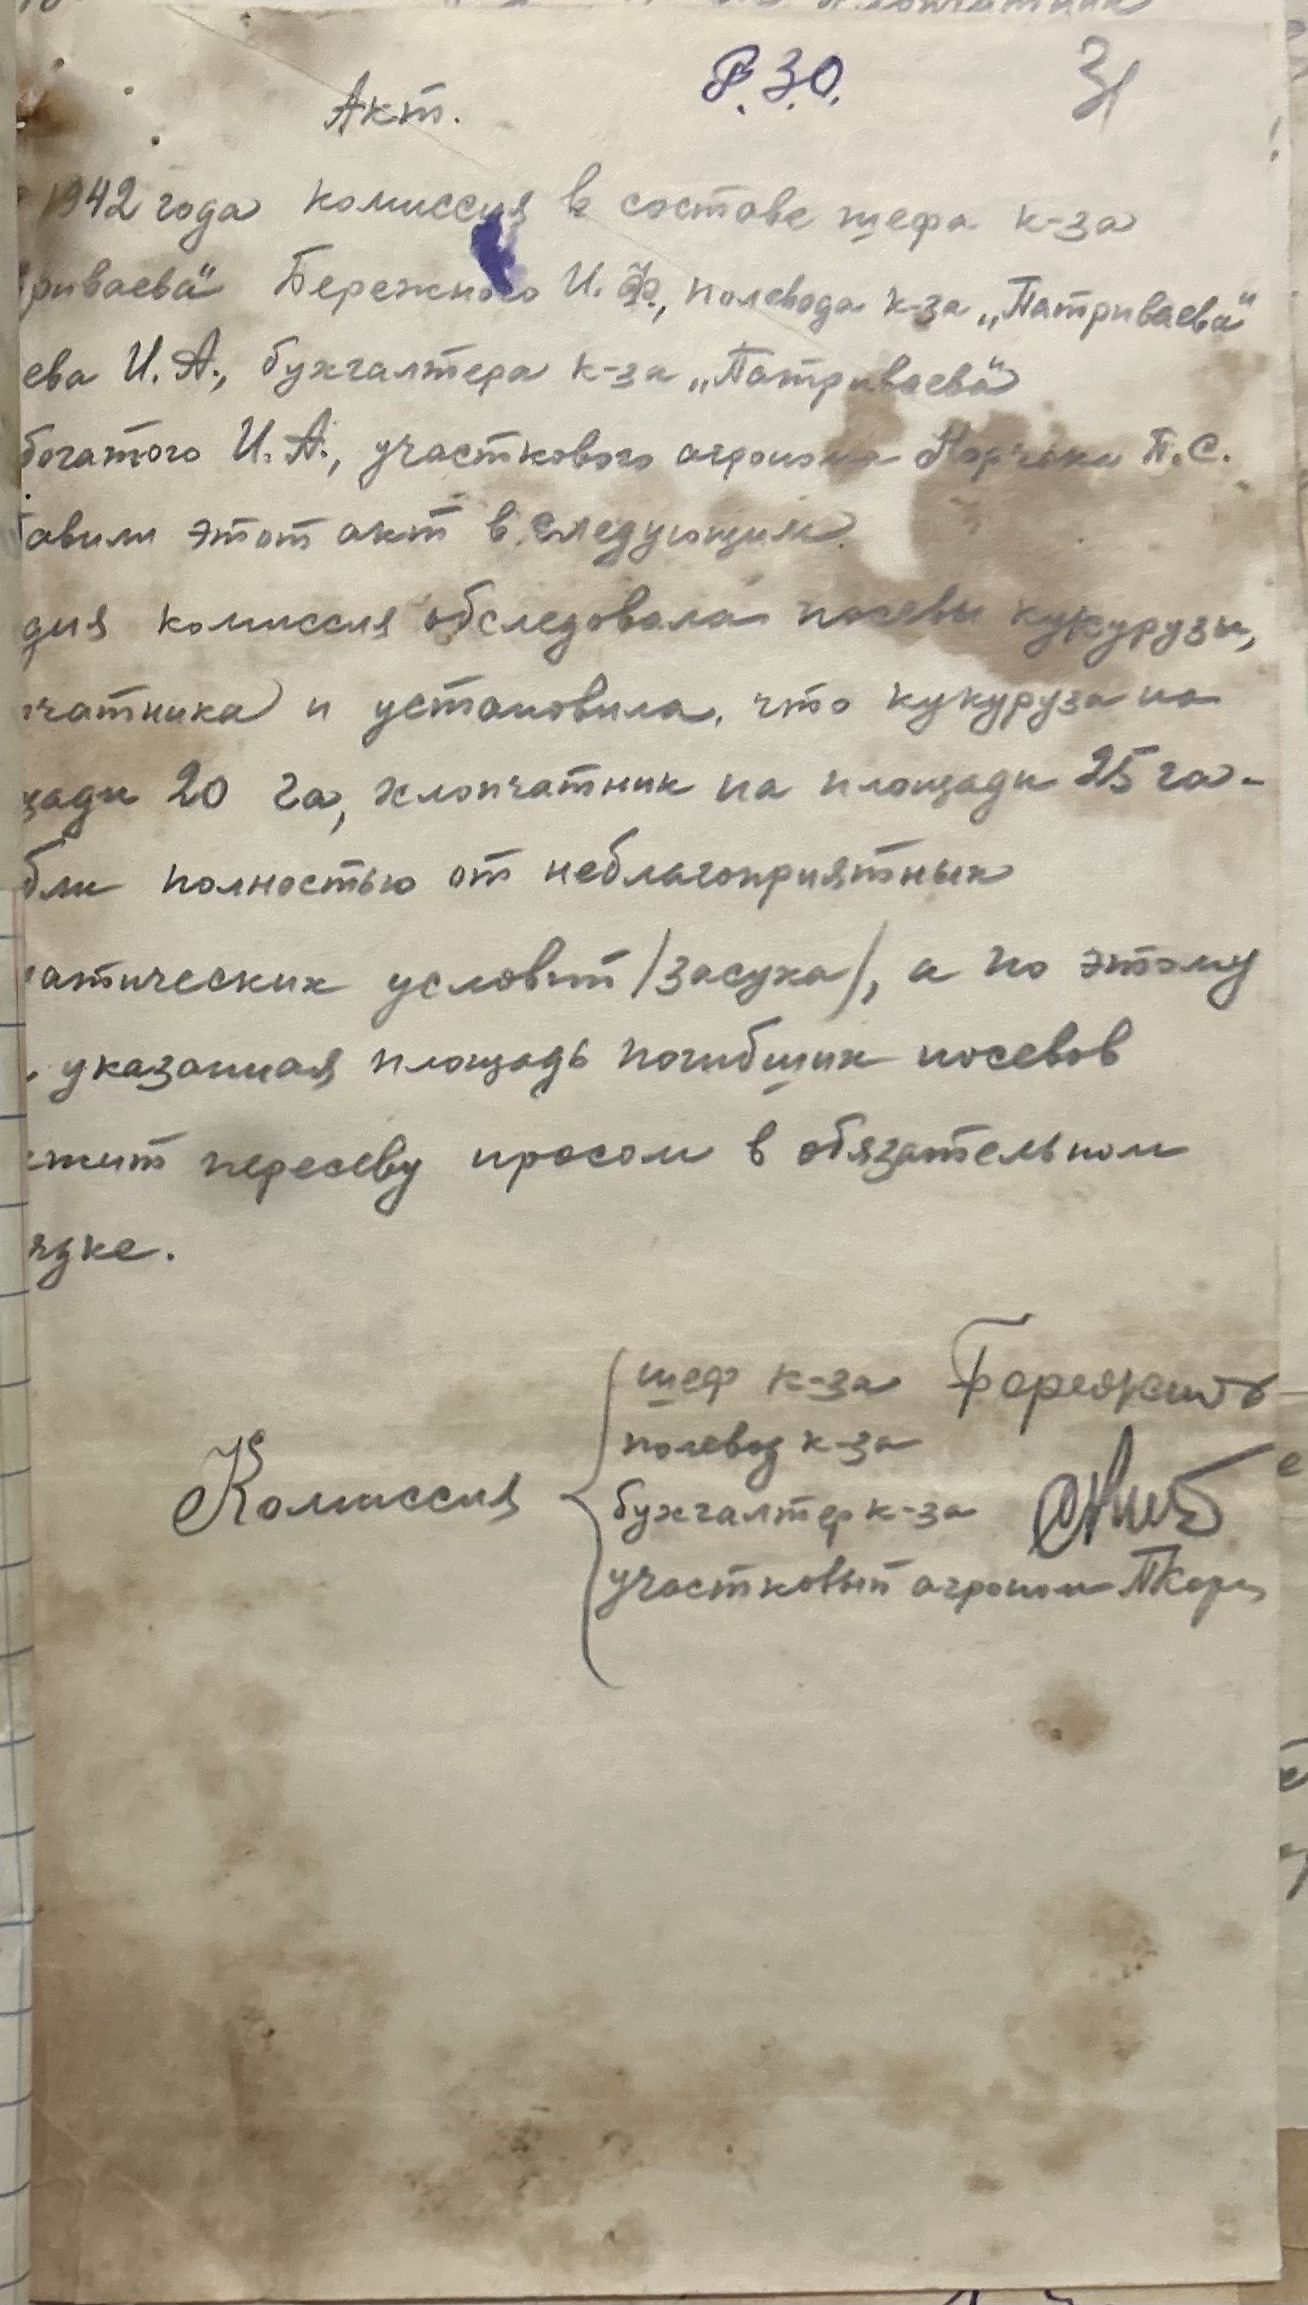 Р.З.О.
31
Акт.
1942 года комиссия в составе шефа к-за
риваева" Бережного И. Ф., полевода к-за „Патриваева"
ева И. А., бухгалтера к-за „Патриваева"
богатого И. А., участкового агронома П. С.
авили этот акт в следующим.
дия комиссия обследовала посевы кукурузы,
чатника и установила, что кукуруза на
щади 20 га, хлопчатник на площади 25 га-
бли полностью от неблагоприятных
атических условий /засуха/, а по этому
указанная площадь погибших посевов
жит пересеву просом в обязательном
ядке.
Комиссия
шеф к-за
полевод к-за
бухгалтер к-за
участковый агроном